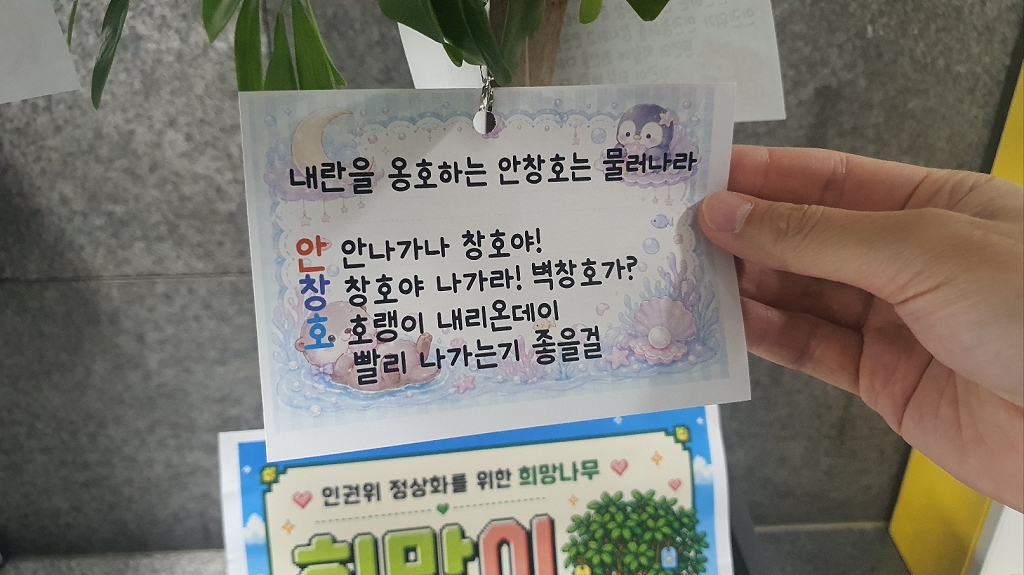 내란을 옹호하는 안창호는 물러나라
안 안나가나 창호야!
창 창호야 나가라! 벽창호가?
호 호랭이 내리온데이
빨리 나가는기 좋을걸
인권위 정상화를 위한 희망나무
희망이